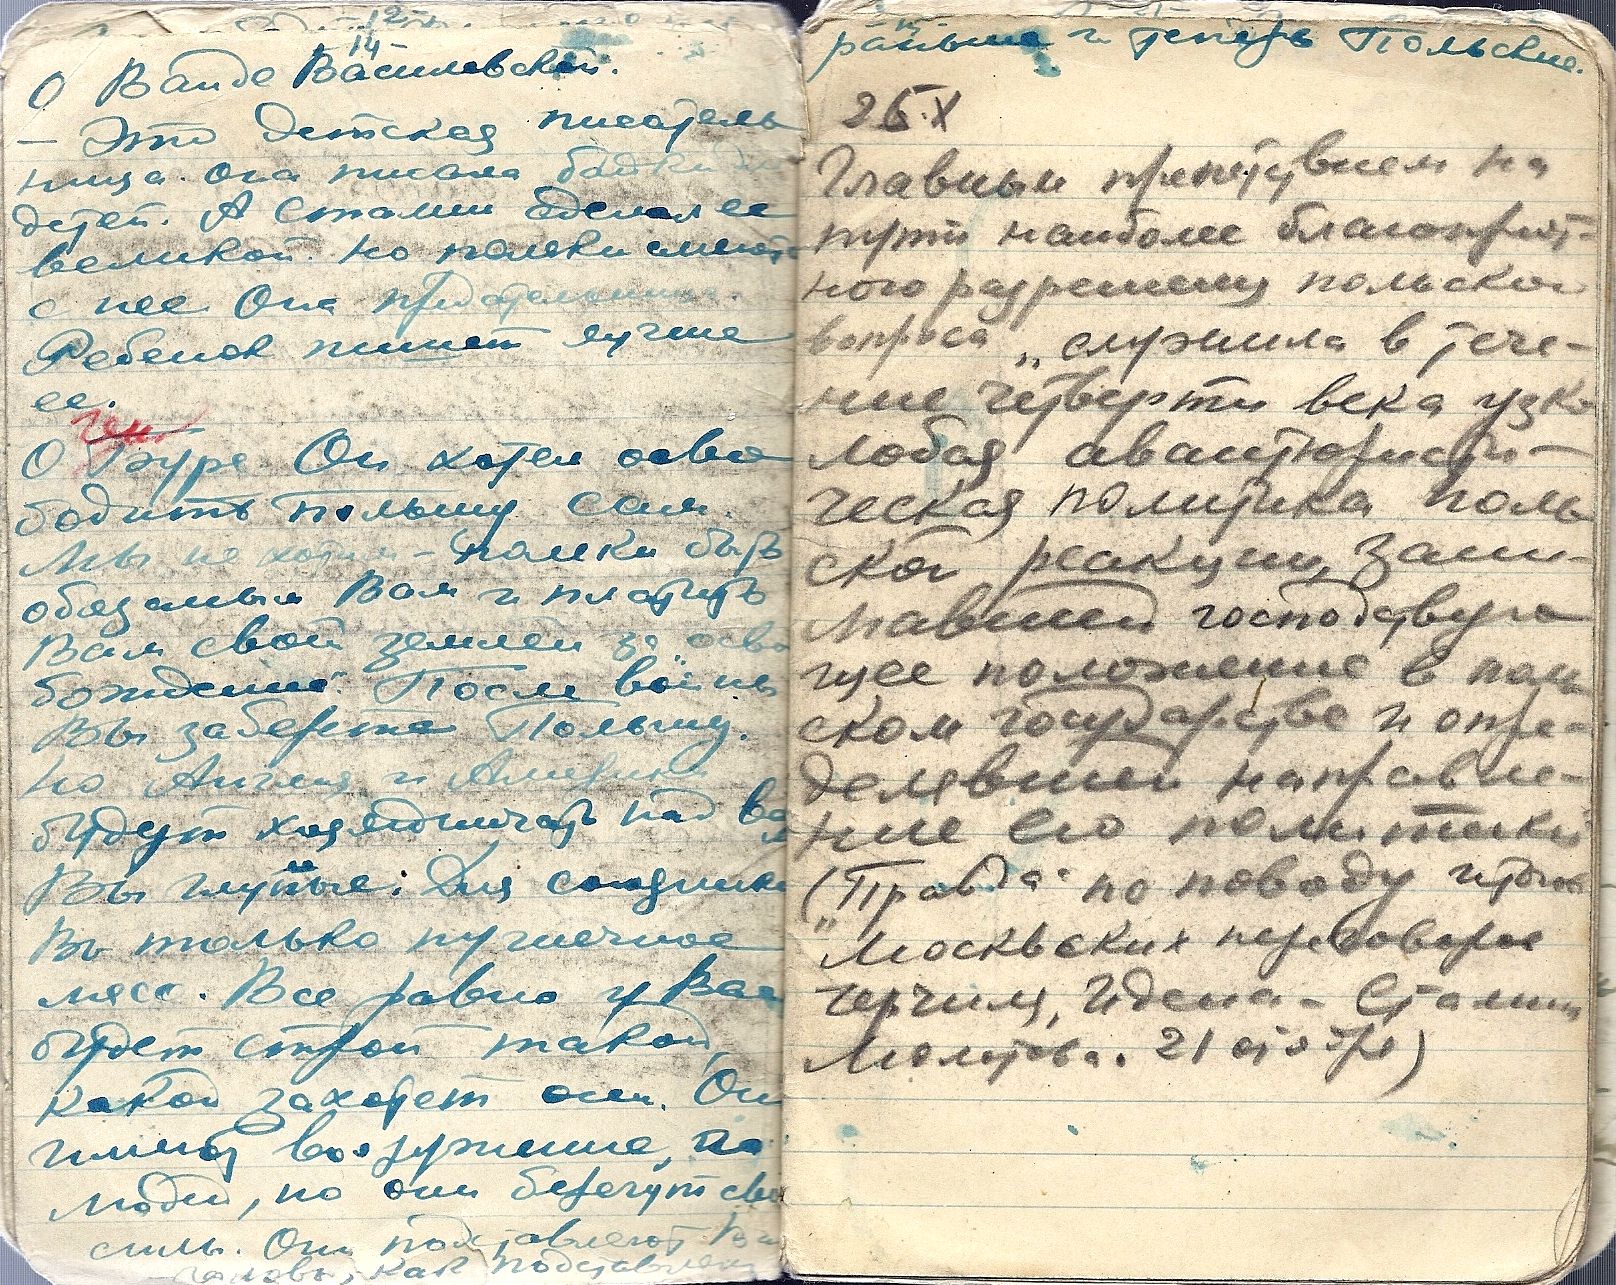 14
О Ванде Василевской.
— Это детская писатель
ница. она писала байки для
детей. А Сталин сделал ее
великой. Но поляки смеются
с нее Она предательница.
Ребенок пишет лучше
ее.
Ген.
О Буре. Он хотел осво
бодить Польшу сам.
Мы не хотим — поляки быть
обязаным Вам и платить
Вам свой землей за „осво
бождение". После войны
Вы заберете Польшу.
Но Англия и Америка
будут хозяйничать над вам
Вы глупые. Для союзника
Вы только пушечное
мясо. Все равно у Вас
будет строй такой,
какой захотят они. Они
имеют вооружение, на
людей, но они берегут свои
силы. Они подставляют Ва
головы, как подставляли
15
раньше и теперь Польские.
26.X
Главным препятствием на
пути наиболее благоприят-
ного разрешения польского
вопроса „служила в тече-
ние четверти века узко
лобая авантюристи-
ческая политика поль
ской реакции, зани-
мавшей господствую
щее положение в поль
ском государстве и опре-
делявшей направле-
ние его политики"
(„Правда" по поводу итогов
Московских переговоров
Черчиля, Идена — Сталина
Молотова. 21 октября)